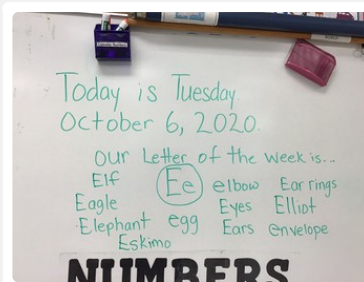 Today is Tuesday
October 6, 2020.
Our Letter of the week is...
Elf Ee elbow Earrings
Eagle Eyes Elliot
Elephant egg Ears envelope
Eskimo
NUMBERS